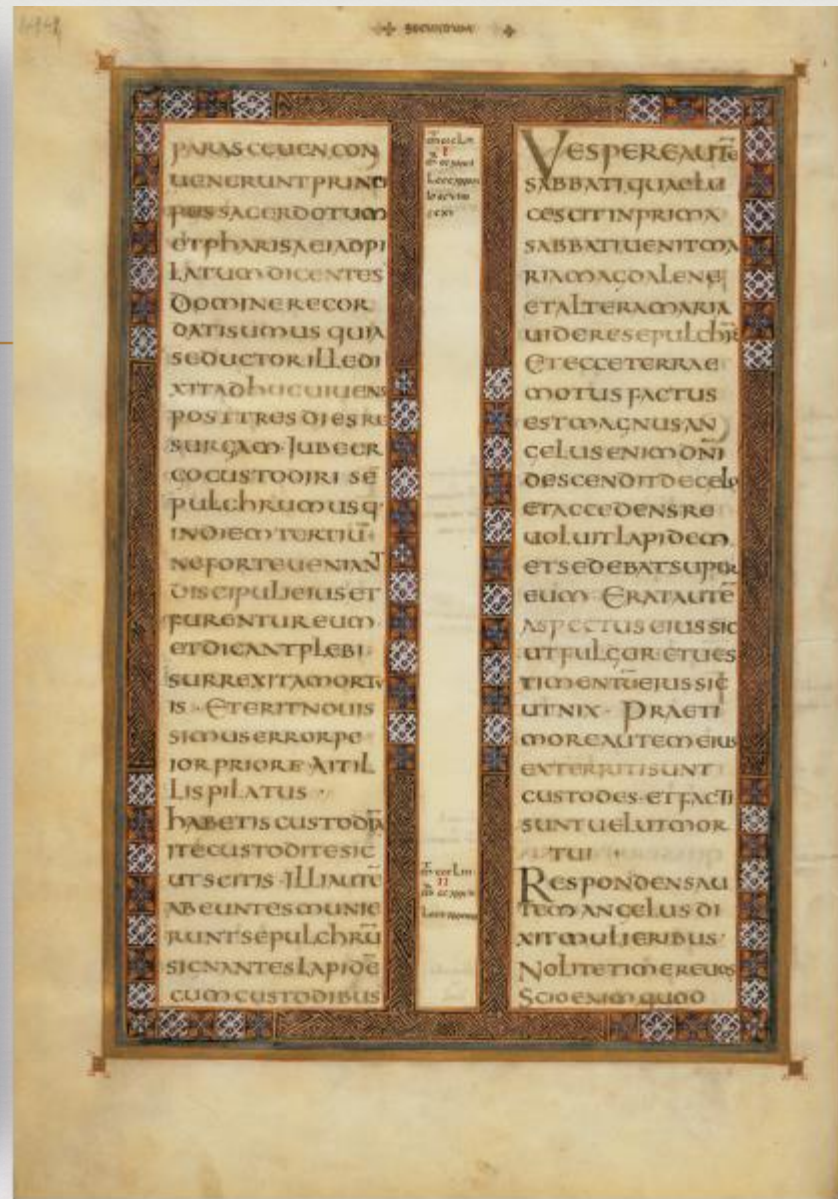 SECUNDUM
PARASCEUEN CON
UENERUNT PRINCI
PES SACERDOTUM
ET PHARISAEI AD PI
LATUM DICENTES
DOMINE RECOR
DATI SUMUS QUIA
SEDUCTOR ILLE DI
XIT ADHUC UIUENS
POST TRES DIES RE
SURGAM · JUBE ER
GO CUSTODIRI SE
PULCHRUM USQ·
IN DIEM TERTIŪ
NE FORTE UENIANT
DISCIPULI EIUS ET
FURENTUR EUM
ET DICANT PLEBI
SURREXIT A MORTU
IS · ET ERIT NOUIS
SIMUS ERROR PE
IOR PRIORE · AIT IL
LIS PILATUS ·
HABETIS CUSTODIĀ
ITE CUSTODITE SIC
UT SCITIS · ILLI AUTĒ
ABEUNTES MUNIE
RUNT SEPULCHRŪ
SIGNANTES LAPIDĒ
CUM CUSTODIBUS
VESPERE AUTĒ
SABBATI QUAE LU
CESCIT IN PRIMA
SABBATI UENIT MA
RIA MAGDALENE
ET ALTERA MARIA
UIDERE SEPULCHR̄
ET ECCE TERRAE
MOTUS FACTUS
EST MAGNUS AN
GELUS ENIM DN̄I
DESCENDIT DE CELO
ET ACCEDENS RE
UOLUIT LAPIDEM
ET SEDEBAT SUPER
EUM · ERAT AUTĒ
ASPECTUS EIUS SIC
UT FULGUR · ET UES
TIMENTŪ EIUS SIC
UT NIX · PRAE TI
MORE AUTEM EIUS
EXTERRITI SUNT
CUSTODES · ET FACTI
SUNT UELUT MOR
TUI ·
RESPONDENS AU
TEM ANGELUS DI
XIT MULIERIBUS
NOLITE TIMERE UOS
SCIO ENIM QUOD